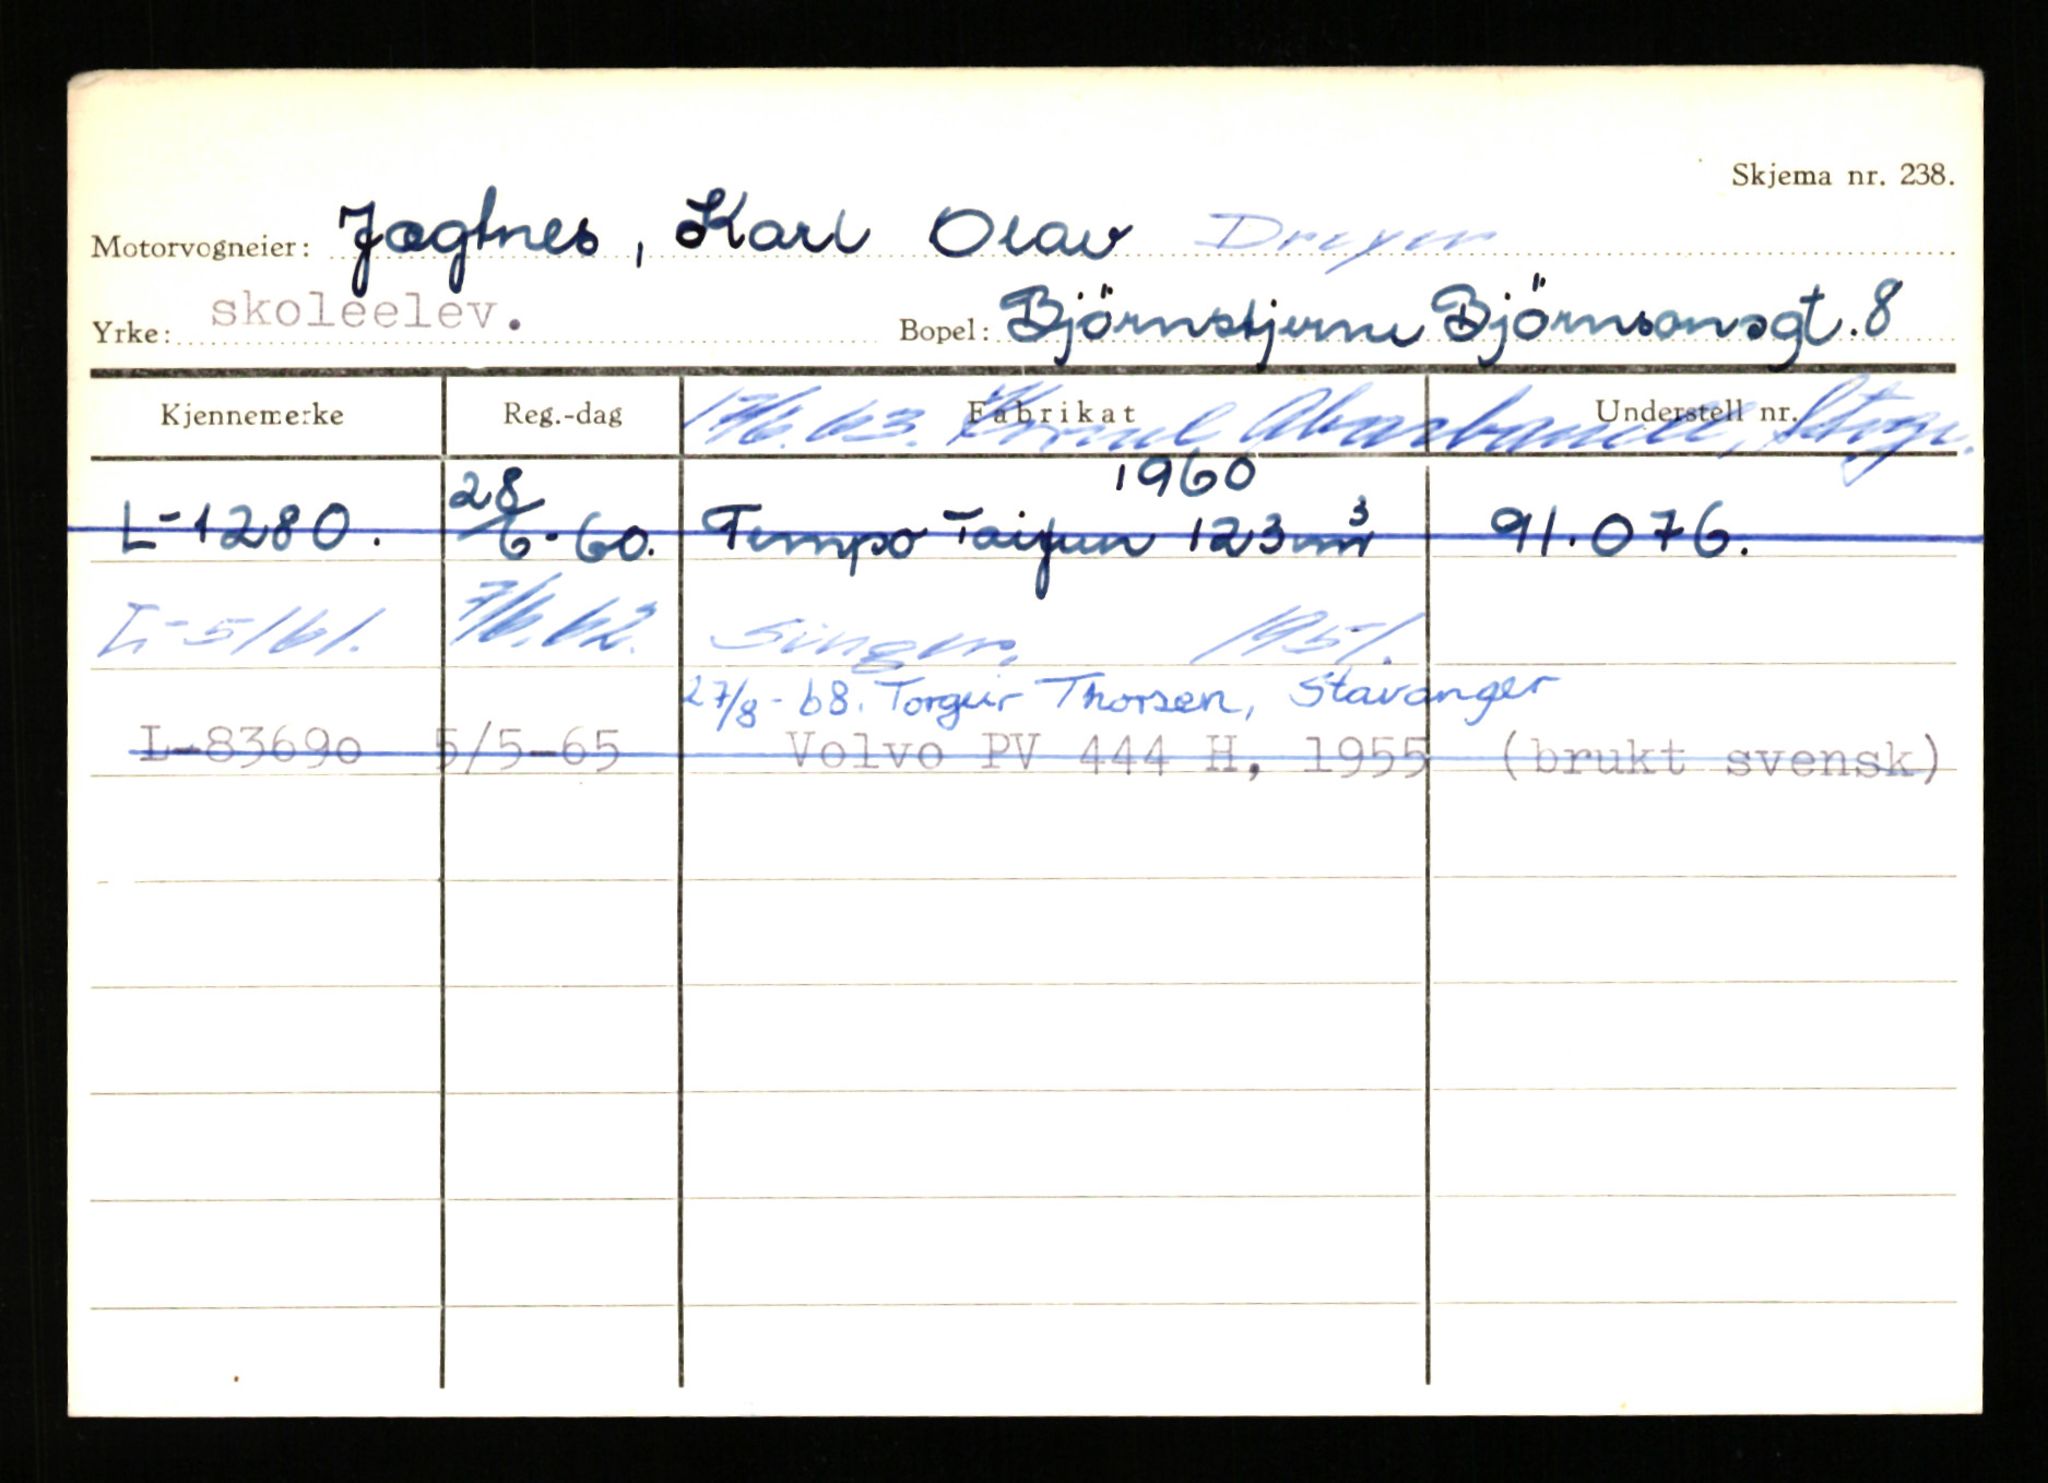 Skjema nr. 238.
Motorvogneier: Jægtnes, Karl Olav Dreyer
Yrke: skoleelev. Bopel: Björnstjerne Björnsonsgt. 8
Kjennemerke Reg.-dag Fabrikat Understell nr.
17/6.63.
1960
L-1280. 28/6-60. Tempo Taifun 123 cm³ 91.076.
L-5161. 7/6.62. Singer. 1951.
27/8-68. Torgeir Thorsen, Stavanger
L-83690 5/5-65 Volvo PV 444 H, 1955 (brukt svensk)